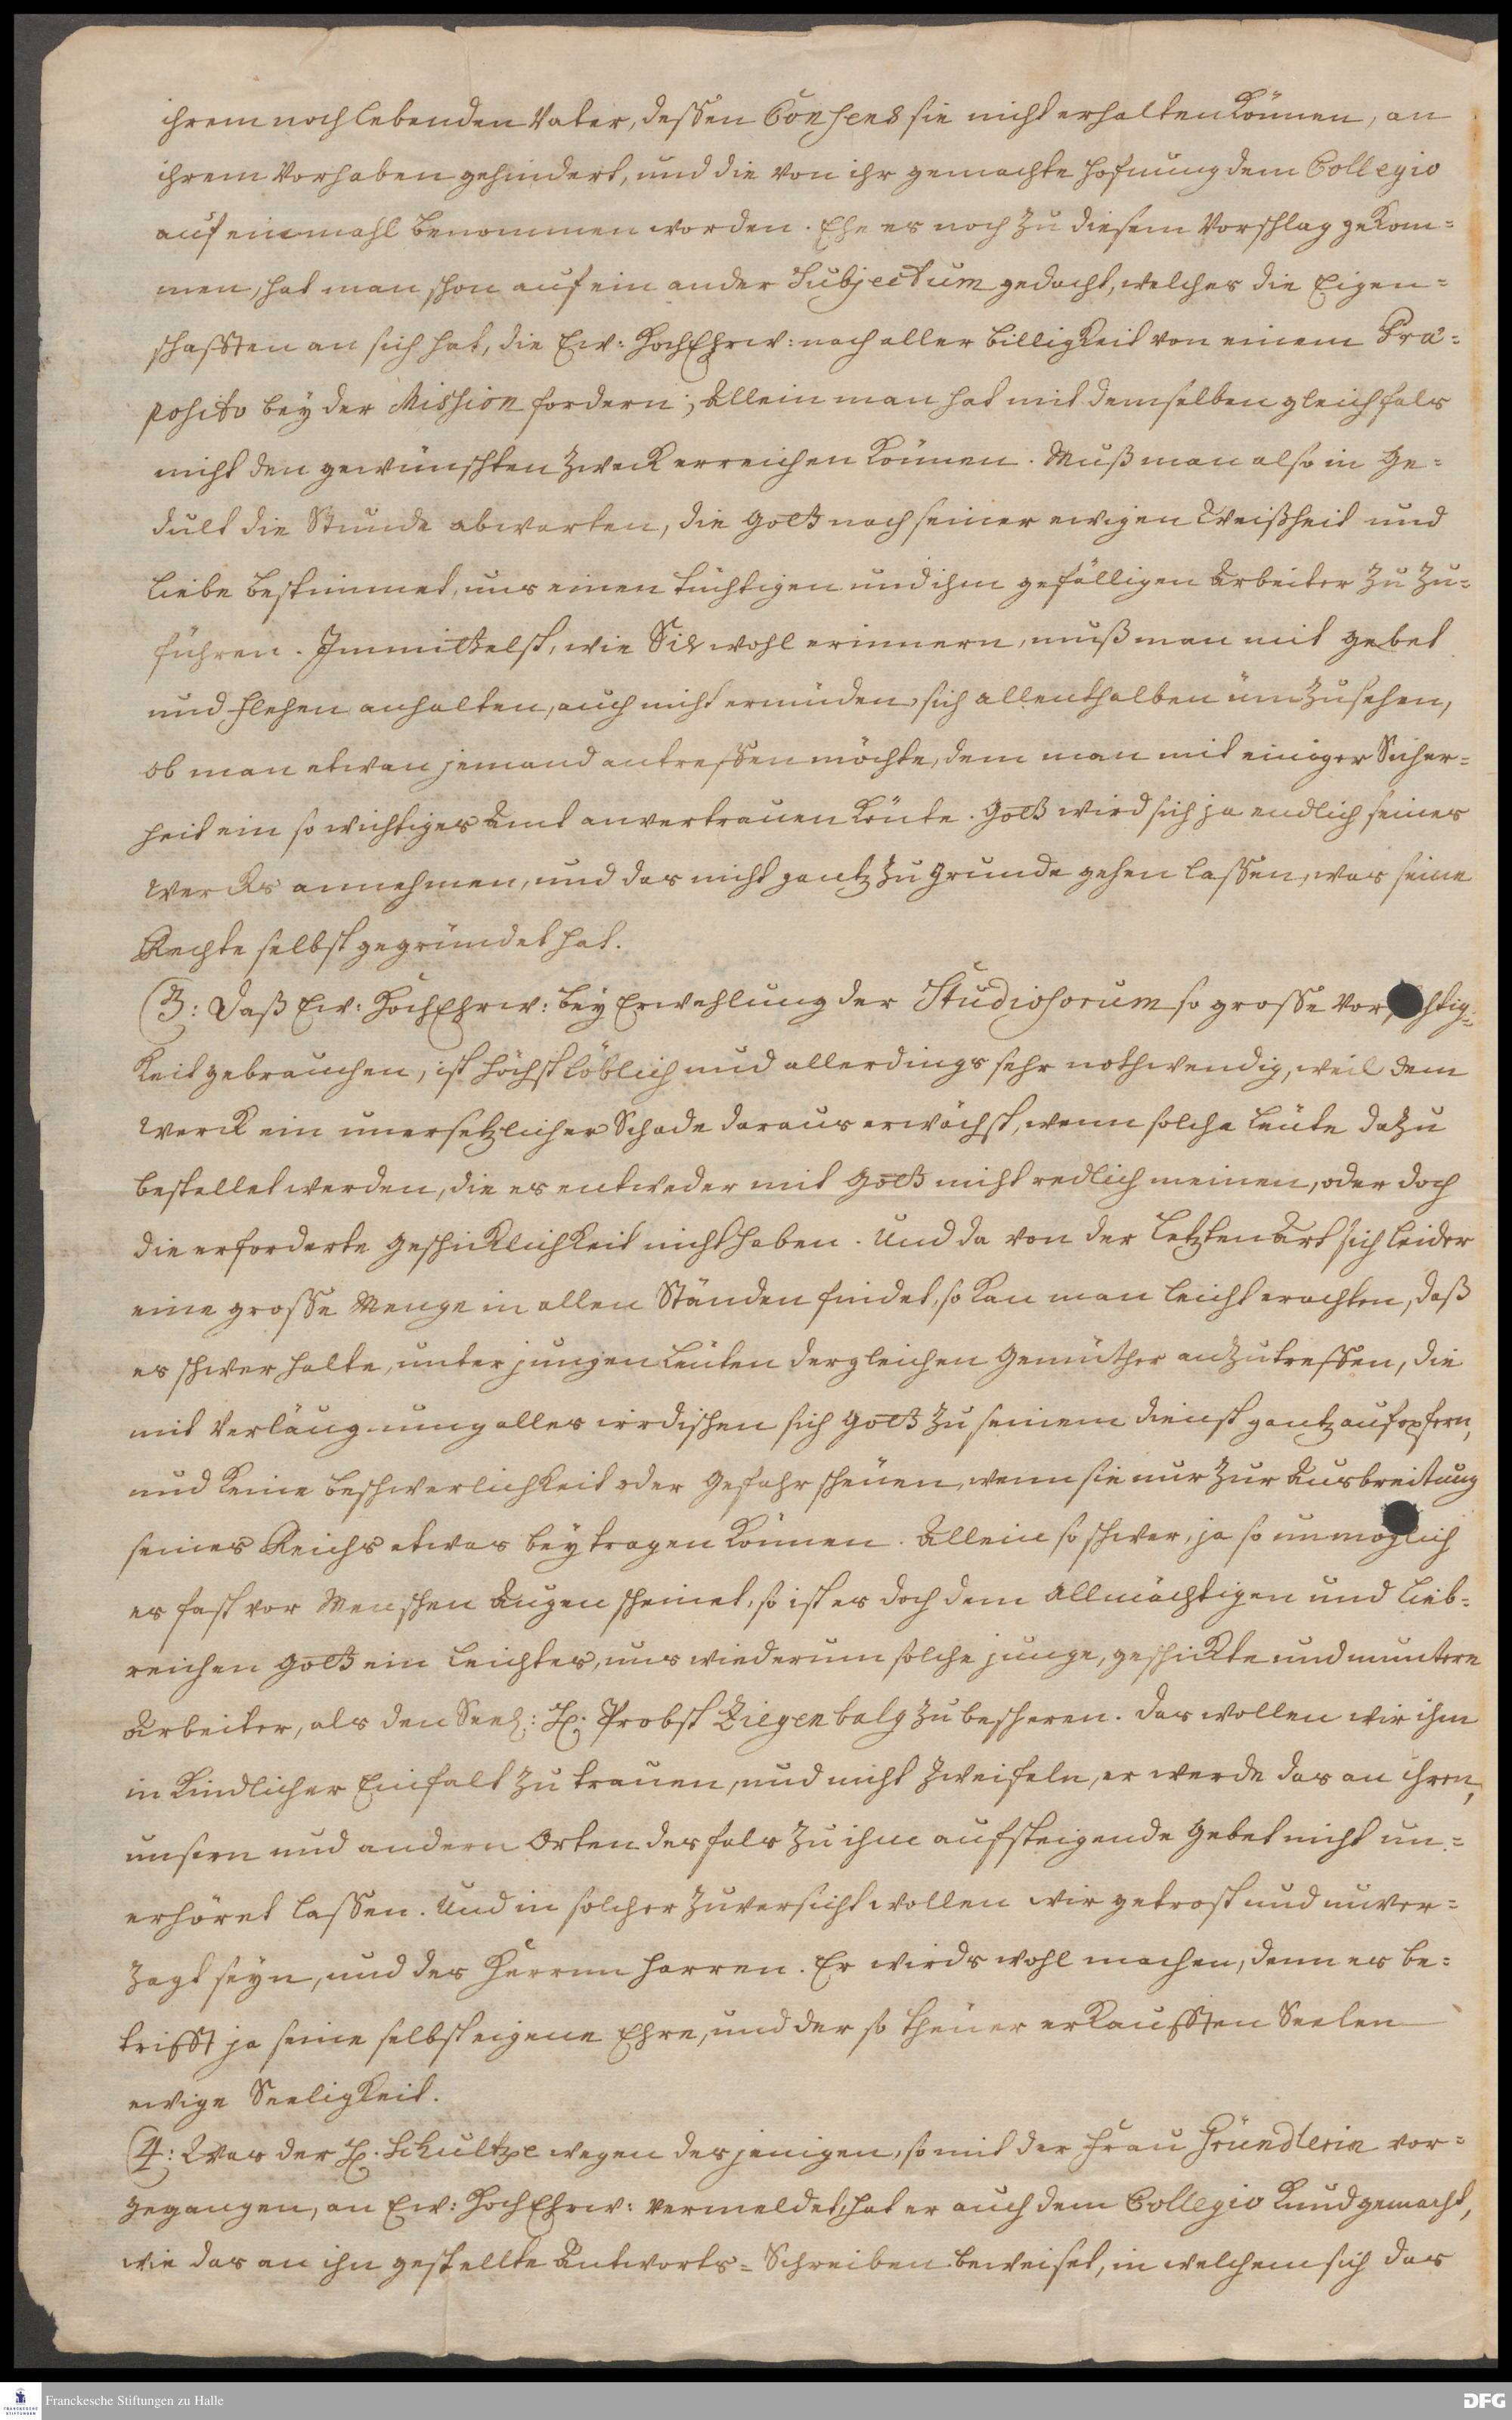 ihrem noch lebenden Vater, dessen Consens sie nicht erhalten können, an
ihrem Vorhaben gehindert, und die von ihr gemachte Hofnung dem Collegio
auf einmahl benommen worden. Ehe es noch zu diesem Vorschlag gekom=
men, hat man schon auf ein ander Subjectum gedacht, welches die Eigen=
schafften an sich hat, die Ew: HochEhrw: nach aller billigkeit von einem Præ=
posito bey der Mission fordern; Allein man hat mit demselben gleichfals
nicht den gewünschten Zweck erreichen können. Muß man also in Ge=
dult die Stunde abwarten, die Gott nach seiner ewigen Weißheit und
Liebe bestimmet, uns einen tüchtigen und ihm gefälligen Arbeiter zu zu=
führen. Immittelst, wie Sie wohl erinnern, muß man mit gebet
und flehen anhalten, auch nicht ermüden, sich allenthalben ümzusehen,
ob man etwan jemand antreffen möchte, dem man mit einiger Sicher=
heit ein so wichtiges Amt anvertrauen könte. Gott wird sich ja endlich seines
Wercks annehmen, und das nicht gantz zu grunde gehen lassen, was seine
Rechte selbst gegründet hat.
(3: Daß Ew: HochEhrw: bey Erwehlung der Studiosorum so grosse Vorsichtig=
keit gebrauchen, ist höchstlöblich und allerdings sehr nothwendig, weil dem
Werck ein unersetzlicher Schade daraus erwächst, wenn solche Leüte dazu
bestellet werden, die es entweder mit Gott nicht redlich meinen, oder doch
die erforderte geschicklichkeit nicht haben. Und da von der letzten Art sich leider
eine grosse Menge in allen Ständen findet, so kan man leicht erachten, daß
es schwer halte, unter jungen Leüten dergleichen Gemüther anzutreffen, die
mit Verläugnung alles irrdischen sich Gott zu seinem dienst gantz aufopfern,
und keine beschwerlichkeit oder Gefahr scheüen, wenn sie nur zur Ausbreitung
seines Reichs etwas beytragen können. Allein so schwer, ja so unmöglich
es fast vor Menschen Augen scheinet, so ist es doch dem Allmächtigen und Lieb=
reichen Gott ein leichtes, uns wiederum solche junge, geschickte und muntere
Arbeiter, als den Seel: H. Probst Ziegenbalg zu bescheren. Das wollen wir ihm
in kindlicher Einfalt zu trauen, und nicht zweifeln, er werde das an ihren,
unsern und andern Orten desfals zu ihm aufsteigende Gebet nicht un=
erhöret lassen. Und in solcher Zuversicht wollen wir getrost und unver=
zagt seyn, und des Herrnn harren. Er wirds wohl machen, denn es be=
trifft ja seine selbst eigene Ehre, und der so theüer erkaufften Seelen
ewige Seeligkeit.
(4: Was der H. Schultze wegen desjenigen, so mit der Frau Gründlerin vor=
gegangen, an Ew: HochEhrw: vermeldet, hat er auch dem Collegio kund gemacht,
wie das an ihn gestellte Antworts=Schreiben beweiset, in welchem sich das
Franckesche Stiftungen zu Halle
DFG